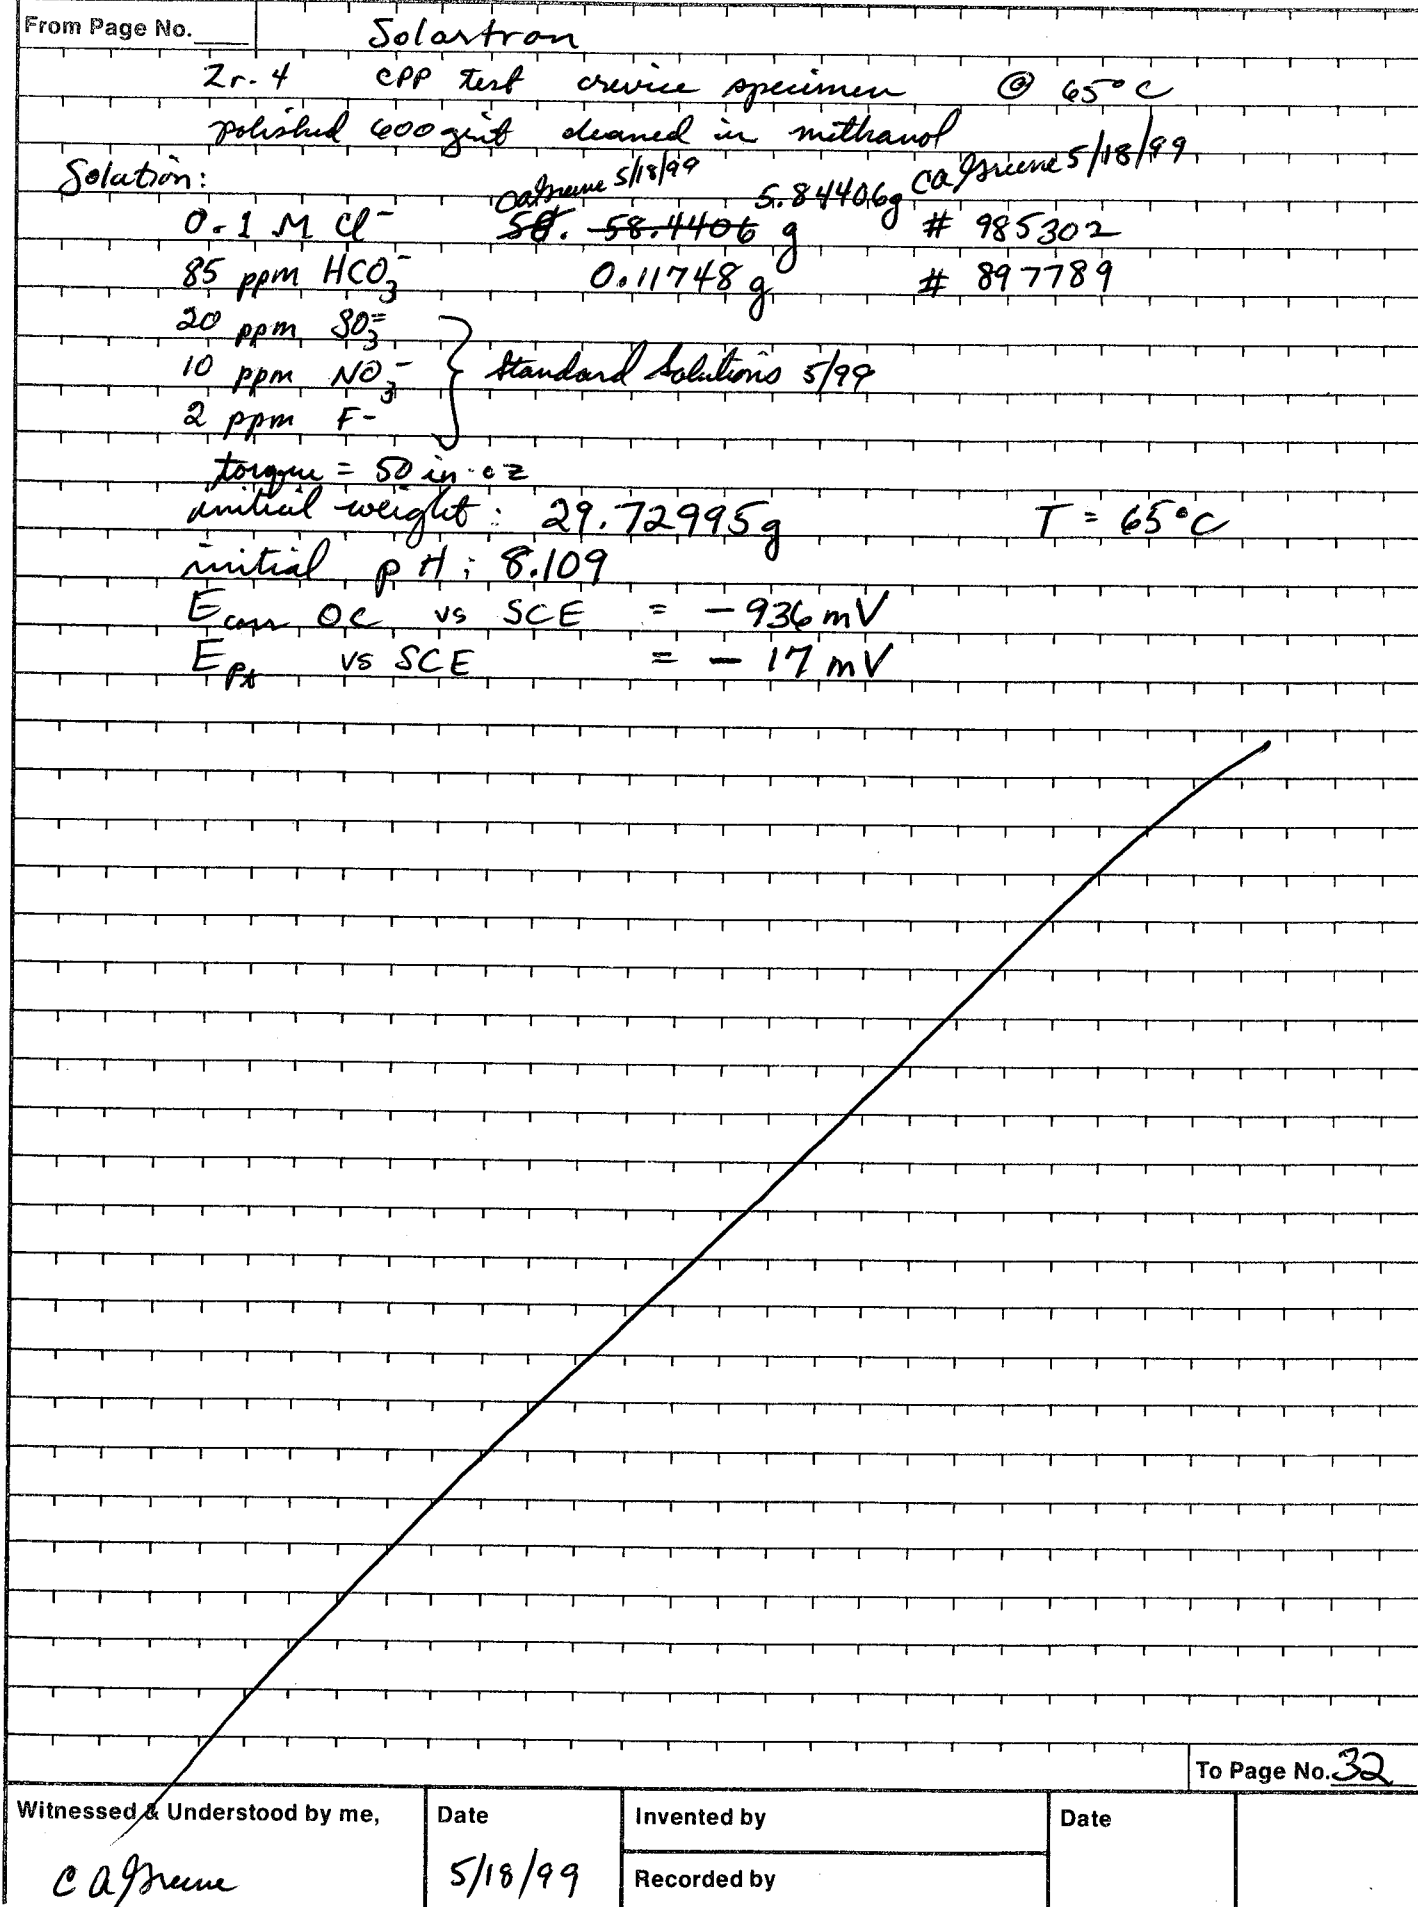 From Page No.
Solartron
Zr-4 CPP test crevice specimen @ 65°C
polished 600 grit cleaned in methanol
Solution:
CAGreene 5/18/99 5.84406g CAGreene 5/18/99
0.1 M Cl⁻ 58.4406 g # 985302
85 ppm HCO₃⁻ 0.11748 g # 897789
20 ppm SO₃⁼
10 ppm NO₃⁻ } Standard Solutions 5/99
2 ppm F-
torque = 50 in-oz
initial weight: 29.72995g T = 65°C
initial pH: 8.109
Ecorr OC vs SCE = -936 mV
EPt vs SCE = - 17 mV
To Page No. 32
Witnessed & Understood by me, Date Invented by Date
CAGreene 5/18/99 Recorded by